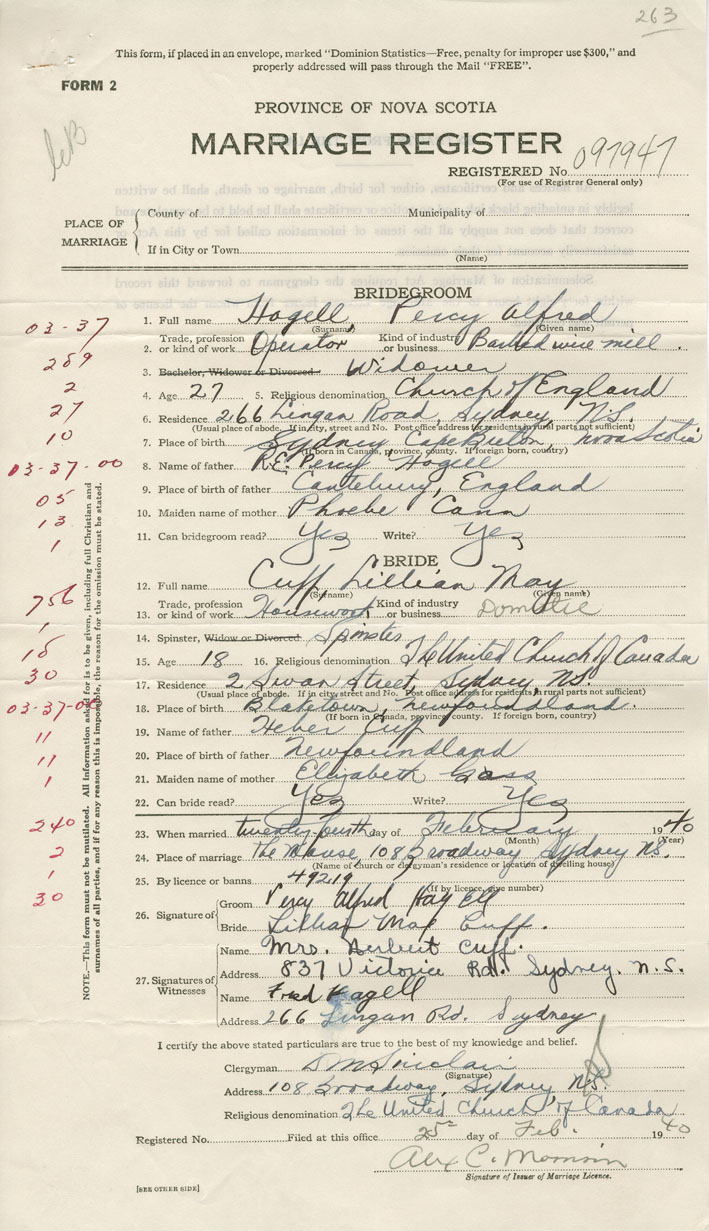 263
This form, if placed in an envelope, marked "Dominion Statistics—Free, penalty for improper use $300," and
properly addressed will pass through the Mail "FREE".
FORM 2
PROVINCE OF NOVA SCOTIA
MARRIAGE REGISTER
REGISTERED No. 097947
(For use of Registrar General only)
PLACE OF MARRIAGE
County of Municipality of
If in City or Town
(Name)
BRIDEGROOM
03-37
1. Full name Hagell Percy Alfred
(Surname) (Given name)
289
2. Trade, profession or kind of work Operator Kind of industry or business Barbed wire mill.
3. Bachelor, Widower or Divorced Widower
2
4. Age 27 5. Religious denomination Church of England
27
6. Residence 266 Lingan Road, Sydney, N.S.
(Usual place of abode. If in city, street and No. Post office address for residents in rural parts not sufficient)
10
7. Place of birth Sydney Cape Breton, Nova Scotia
(If born in Canada, province, county. If foreign born, country)
03-37-00
8. Name of father R.E. Percy Hagell
05
9. Place of birth of father Cantebury, England
13
10. Maiden name of mother Phoebe Cann
1
11. Can bridegroom read? Yes Write? Yes
BRIDE
12. Full name Cuff Lillian May
(Surname) (Given name)
756
13. Trade, profession or kind of work Housework Kind of industry or business Domestic
1
14. Spinster, Widow or Divorced Spinster
18
15. Age 18 16. Religious denomination The United Church of Canada
30
17. Residence 2 Swan Street, Sydney NS.
(Usual place of abode. If in city, street and No. Post office address for residents in rural parts not sufficient)
03-37-00
18. Place of birth Blaketown, Newfoundland.
(If born in Canada, province, county. If foreign born, country)
19. Name of father Heber Cuff
11
20. Place of birth of father Newfoundland
11
21. Maiden name of mother Elizabeth Gass
1
22. Can bride read? Yes Write? Yes
240
23. When married twenty-fourth day of February 1940
(Month) (Year)
2
24. Place of marriage The Manse, 108 Broadway Sydney NS.
(Name of church or clergyman's residence or location of dwelling house)
1
25. By licence or banns 49219
(If by licence, give number)
30
26. Signature of
Groom Percy Alfred Hagell
Bride Lillian May Cuff.
27. Signatures of Witnesses
Name Mrs. Herbert Cuff.
Address 837 Victoria Rd. Sydney. N.S.
Name Fred Hagell
Address 266 Lingan Rd. Sydney
NOTE.—This form must not be mutilated. All information asked for is to be given, including full Christian and
surnames of all parties, and if for any reason this is impossible, the reason for the omission must be stated.
I certify the above stated particulars are true to the best of my knowledge and belief.
Clergyman D M Sinclair
(Signature)
Address 108 Broadway, Sydney N.S.
Religious denomination The United Church of Canada
Registered No. Filed at this office 25 day of Feb. 1940
Alex C. Morrison
Signature of Issuer of Marriage Licence.
[SEE OTHER SIDE]